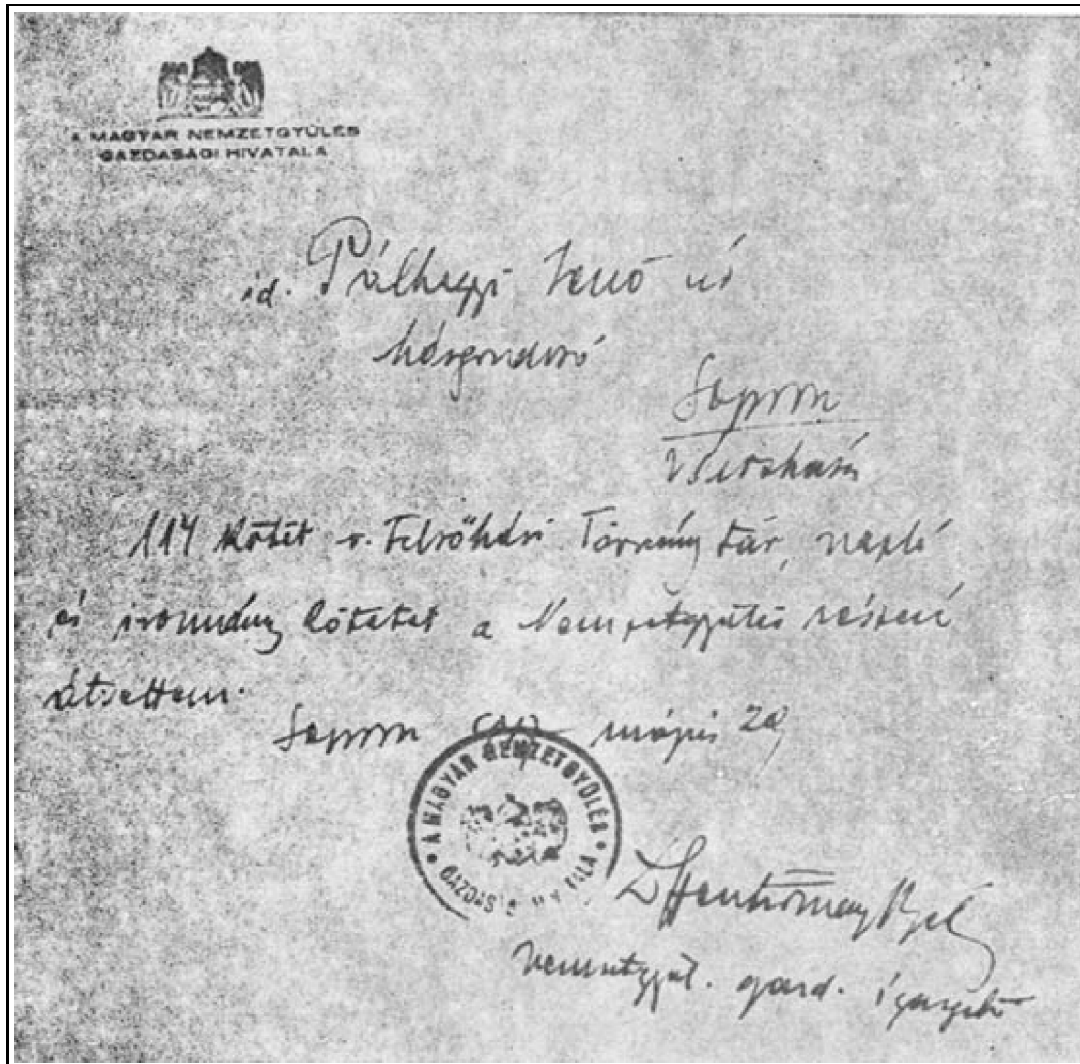 A MAGYAR NEMZETGYŰLÉS
GAZDASÁGI HIVATALA
id. Pálhegyi Jenő úr
házgondozó
Sopron
Városháza
114 kötet v. Felsőházi Törvénytár, napló
és iromány kötetet a Nemzetgyűlés részére
átvettem.
Sopron május 20
• A MAGYAR NEMZETGYŰLÉS •
GAZDAS
nemzetgyűl. gazd. igazgató